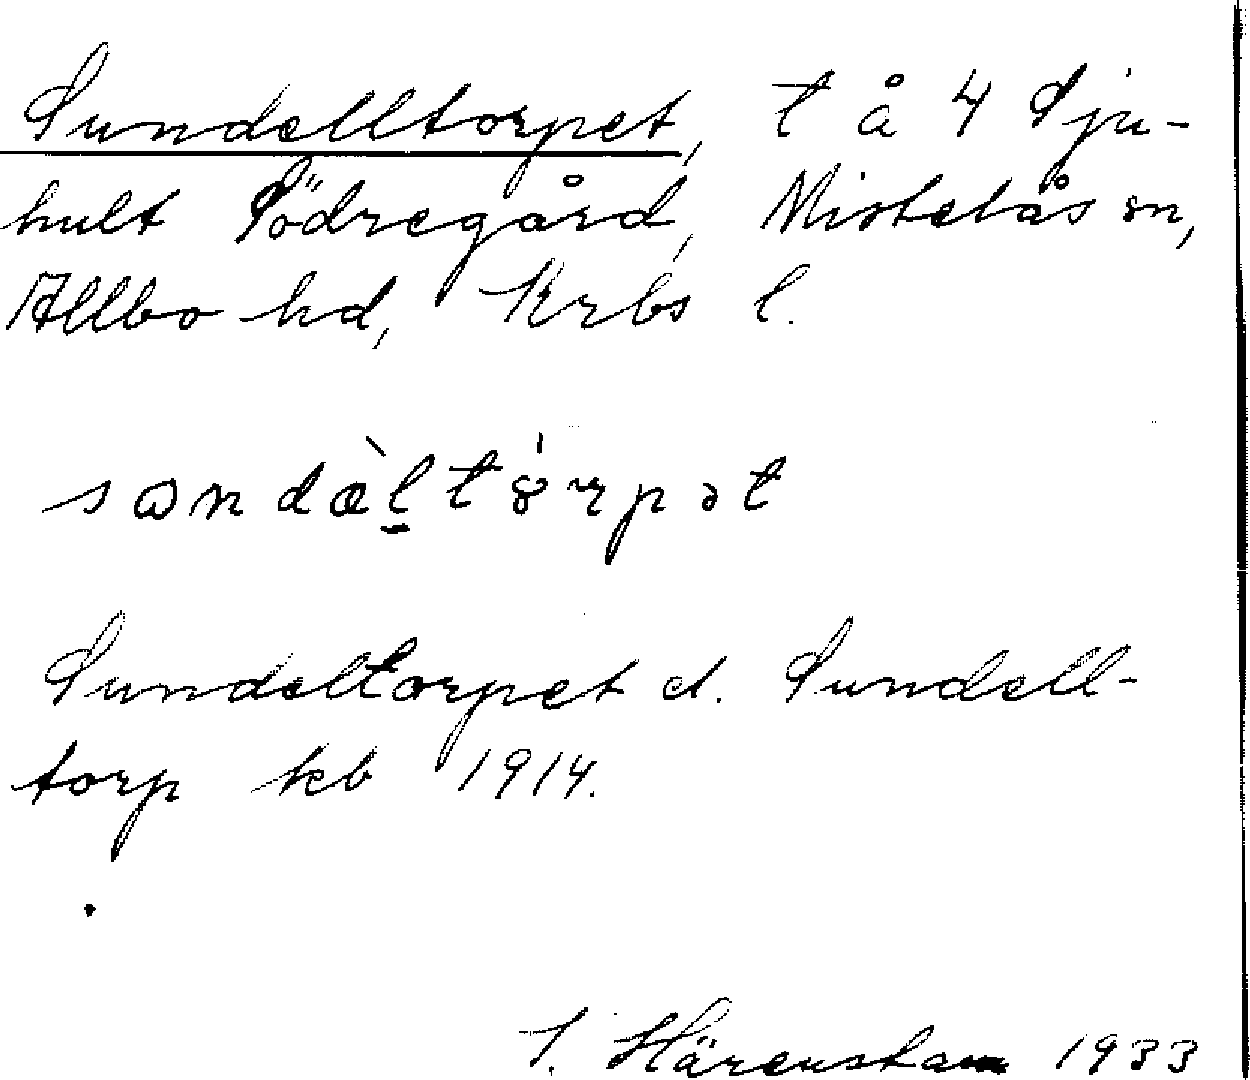 Sundelltorpet, t å 4 Sju-
hult Södregård, Mistelås sn,
Allbo hd, Krbs l.
sɷndæ̀l̠tȣ́rpət
Sundeltorpet el. Sundell-
torp kb 1914.
I. Härenstam 1933